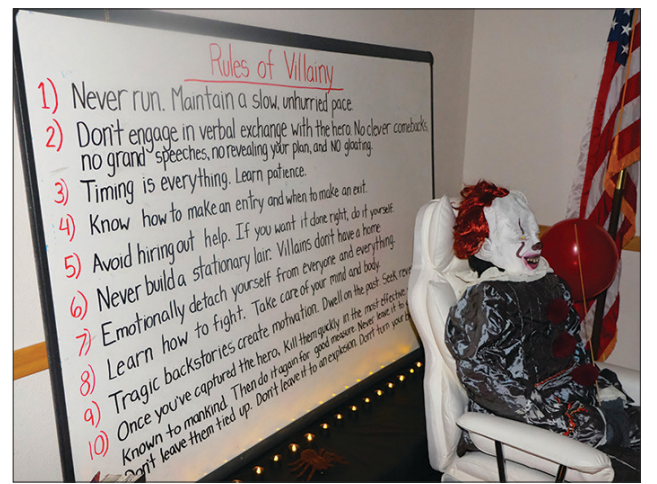 Rules of Villainy
1) Never run. Maintain a slow, unhurried pace.
2) Don't engage in verbal exchange with the hero. No clever comebacks,
no grand speeches, no revealing your plan, and NO gloating.
3) Timing is everything. Learn patience.
4) Know how to make an entry and when to make an exit.
5) Avoid hiring out help. If you want it done right, do it yourself.
6) Never build a stationary lair. Villains don't have a home
7) Emotionally detach yourself from everyone and everything.
8) Learn how to fight. Take care of your mind and body.
9) Tragic backstories create motivation. Dwell on the past. Seek
10) Once you've captured the hero, Kill them quickly in the most effective
Known to mankind. Then do it again for good measure. Never leave it to
Don't leave them tied up. Don't leave it to an explosion. Don't turn your